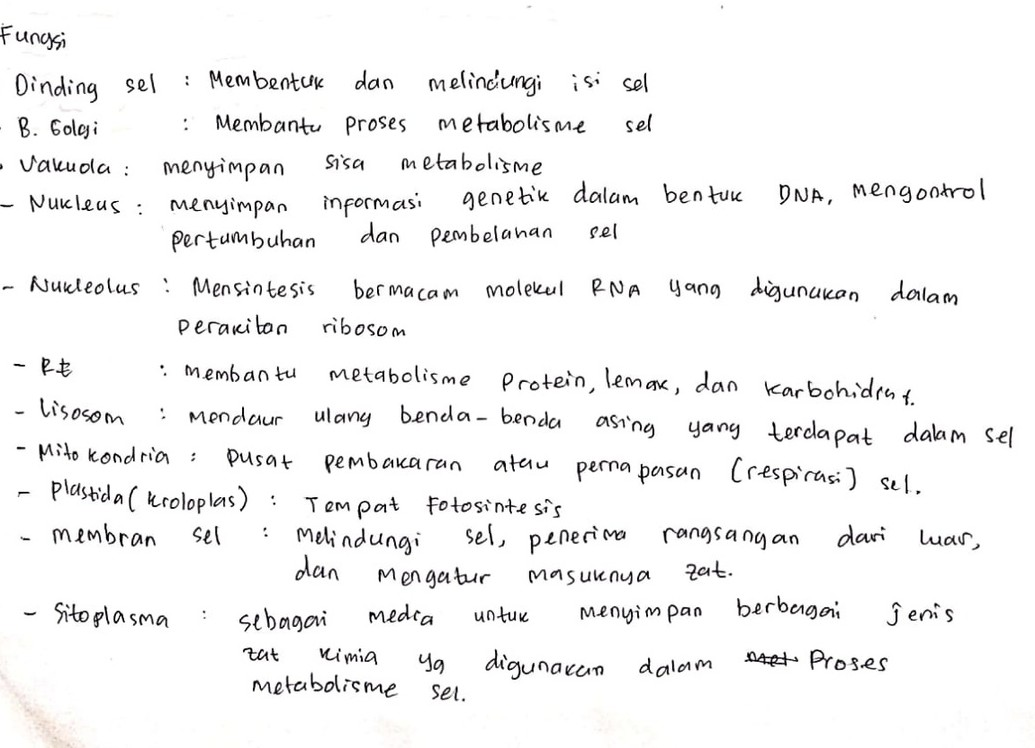 Fungsi
Dinding sel : Membentuk dan melindungi isi sel
- B. Golgi : Membantu proses metabolisme sel
- Vakuola : menyimpan sisa metabolisme
- Nukleus : menyimpan informasi genetik dalam bentuk DNA, mengontrol
pertumbuhan dan pembelahan sel
- Nukleolus : Mensintesis bermacam molekul RNA yang digunakan dalam
perakitan ribosom
- RE : membantu metabolisme protein, lemak, dan karbohidrat.
- Lisosom : Mendaur ulang benda-benda asing yang terdapat dalam sel
- Mitokondria : Pusat pembakaran atau pernapasan (respirasi) sel.
- Plastida (kroloplas) : Tempat Fotosintesis
- membran sel : Melindungi sel, penerima rangsangan dari luar,
dan Mengatur masuknya zat.
- Sitoplasma : sebagai media untuk menyimpan berbagai jenis
zat kimia yg digunakan dalam met Proses
metabolisme sel.